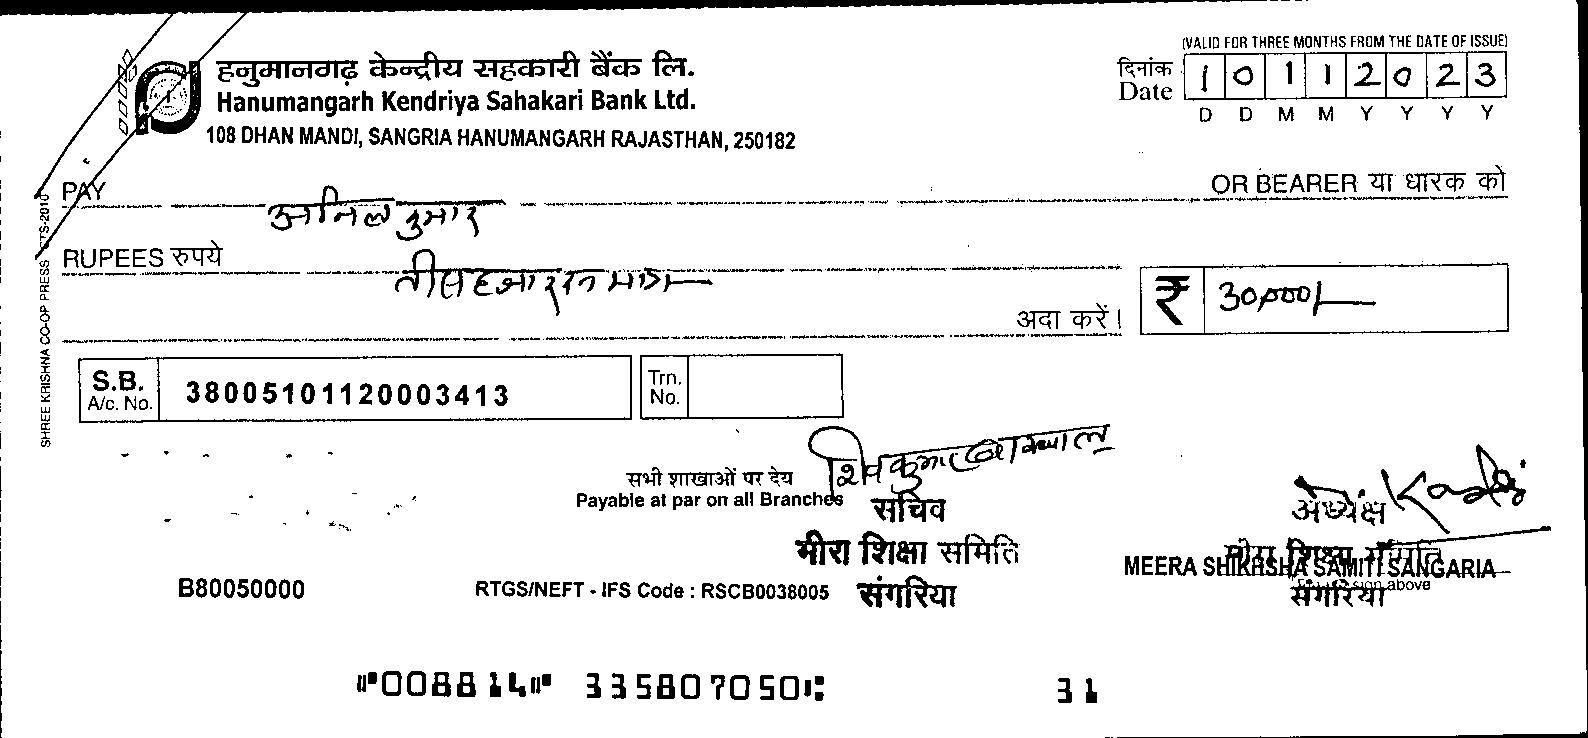 (VALID FOR THREE MONTHS FROM THE DATE OF ISSUE)
हनुमानगढ़ केन्द्रीय सहकारी बैंक लि.
Hanumangarh Kendriya Sahakari Bank Ltd.
108 DHAN MANDI, SANGRIA HANUMANGARH RAJASTHAN, 250182
दिनांक Date 10112023
D D M M Y Y Y Y
PAY अनिल कुमार OR BEARER या धारक को
RUPEES रुपये तीस हजार रू मात्र
अदा करें।
₹ 30,000/-
S.B. A/c. No. 38005101120003413
Trn. No.
SHREE KRISHNA CO-OP PRESS CTS-2010
सभी शाखाओं पर देय
Payable at par on all Branches
शिव कुमार
सचिव
मीरा शिक्षा समिति
संगरिया
अध्यक्ष
मीरा शिक्षा समिति
MEERA SHIKHSHA SAMITI SANGARIA
sign above
संगरिया
B80050000
RTGS/NEFT - IFS Code : RSCB0038005
⑈008814⑈ 335807050⑆ 31